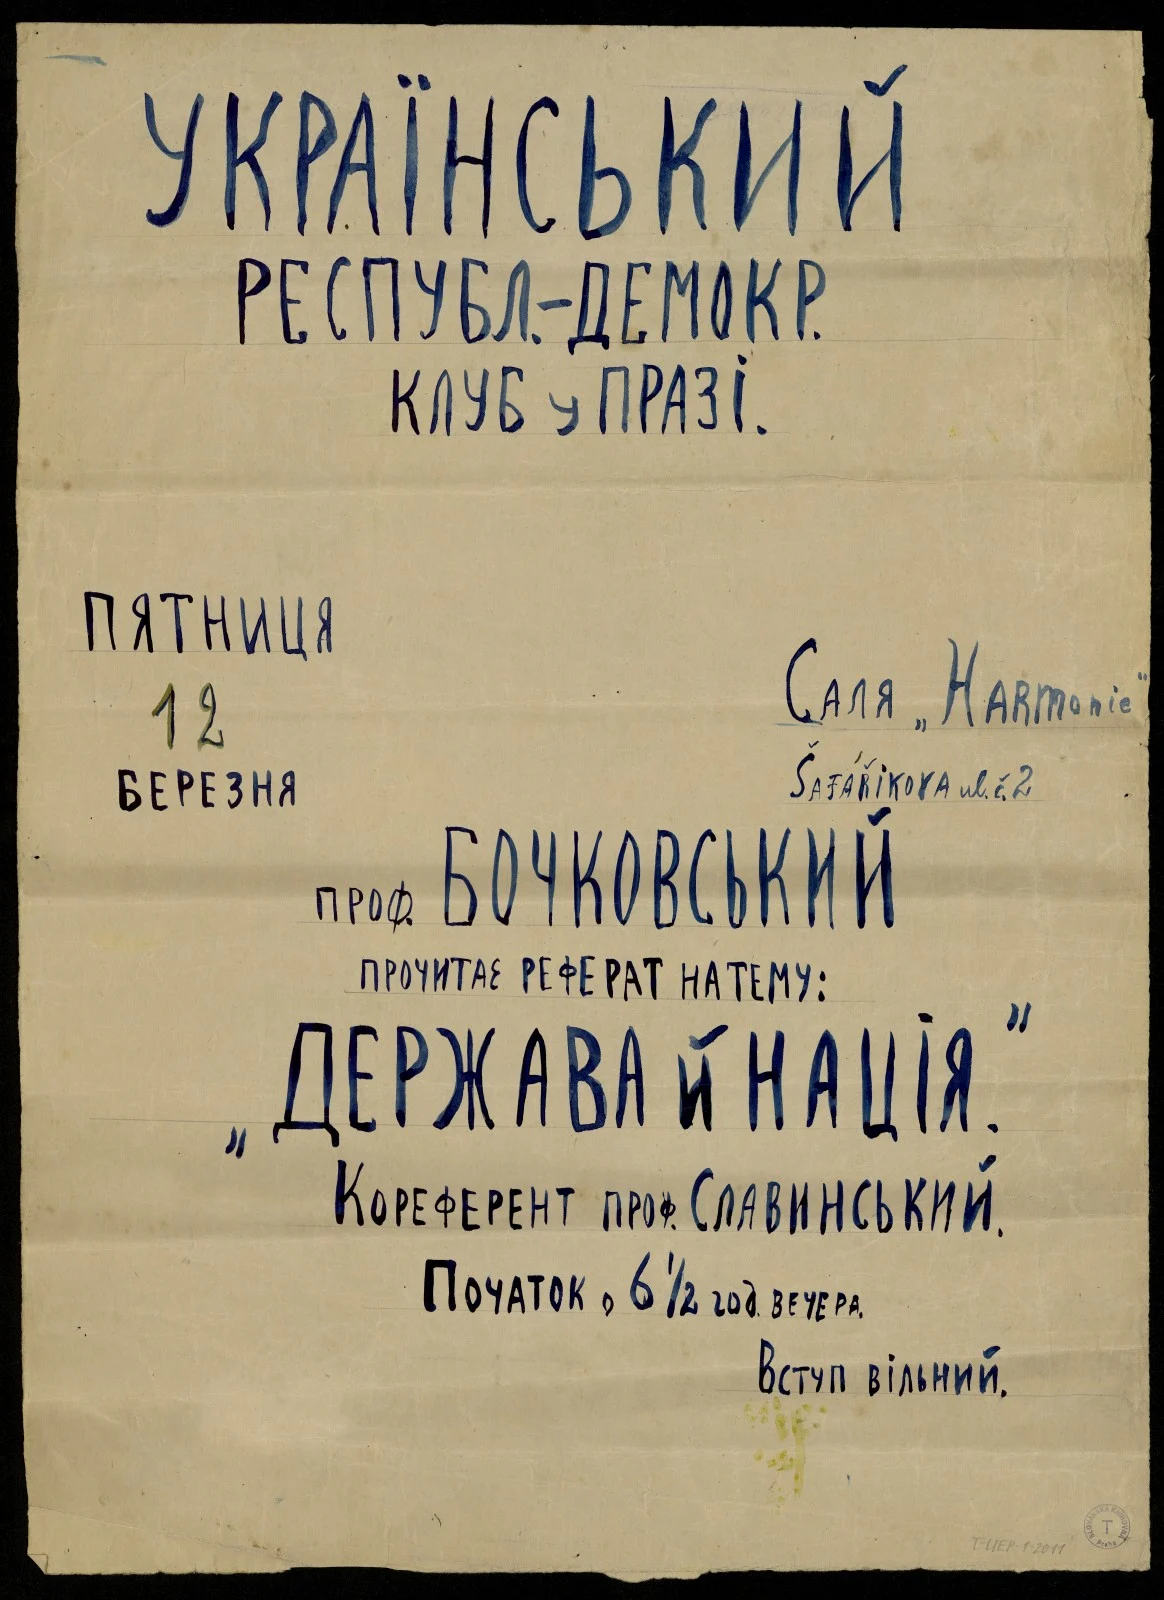 УКРАЇНСЬКИЙ
РЕСПУБЛ.-ДЕМОКР.
КЛУБ у ПРАЗІ.
ПЯТНИЦЯ
12
БЕРЕЗНЯ
САЛЯ „HARmonie"
ŠAFÁŘIKOVA ul. č. 2
ПРОФ. БОЧКОВСЬКИЙ
ПРОЧИТАЄ РЕФЕРАТ НА ТЕМУ:
„ДЕРЖАВА й НАЦІЯ."
КОРЕФЕРЕНТ ПРОФ. СЛАВИНСЬКИЙ.
ПОЧАТОК о 6 1/2 год. ВЕЧЕРА.
ВСТУП ВІЛЬНИЙ.
T